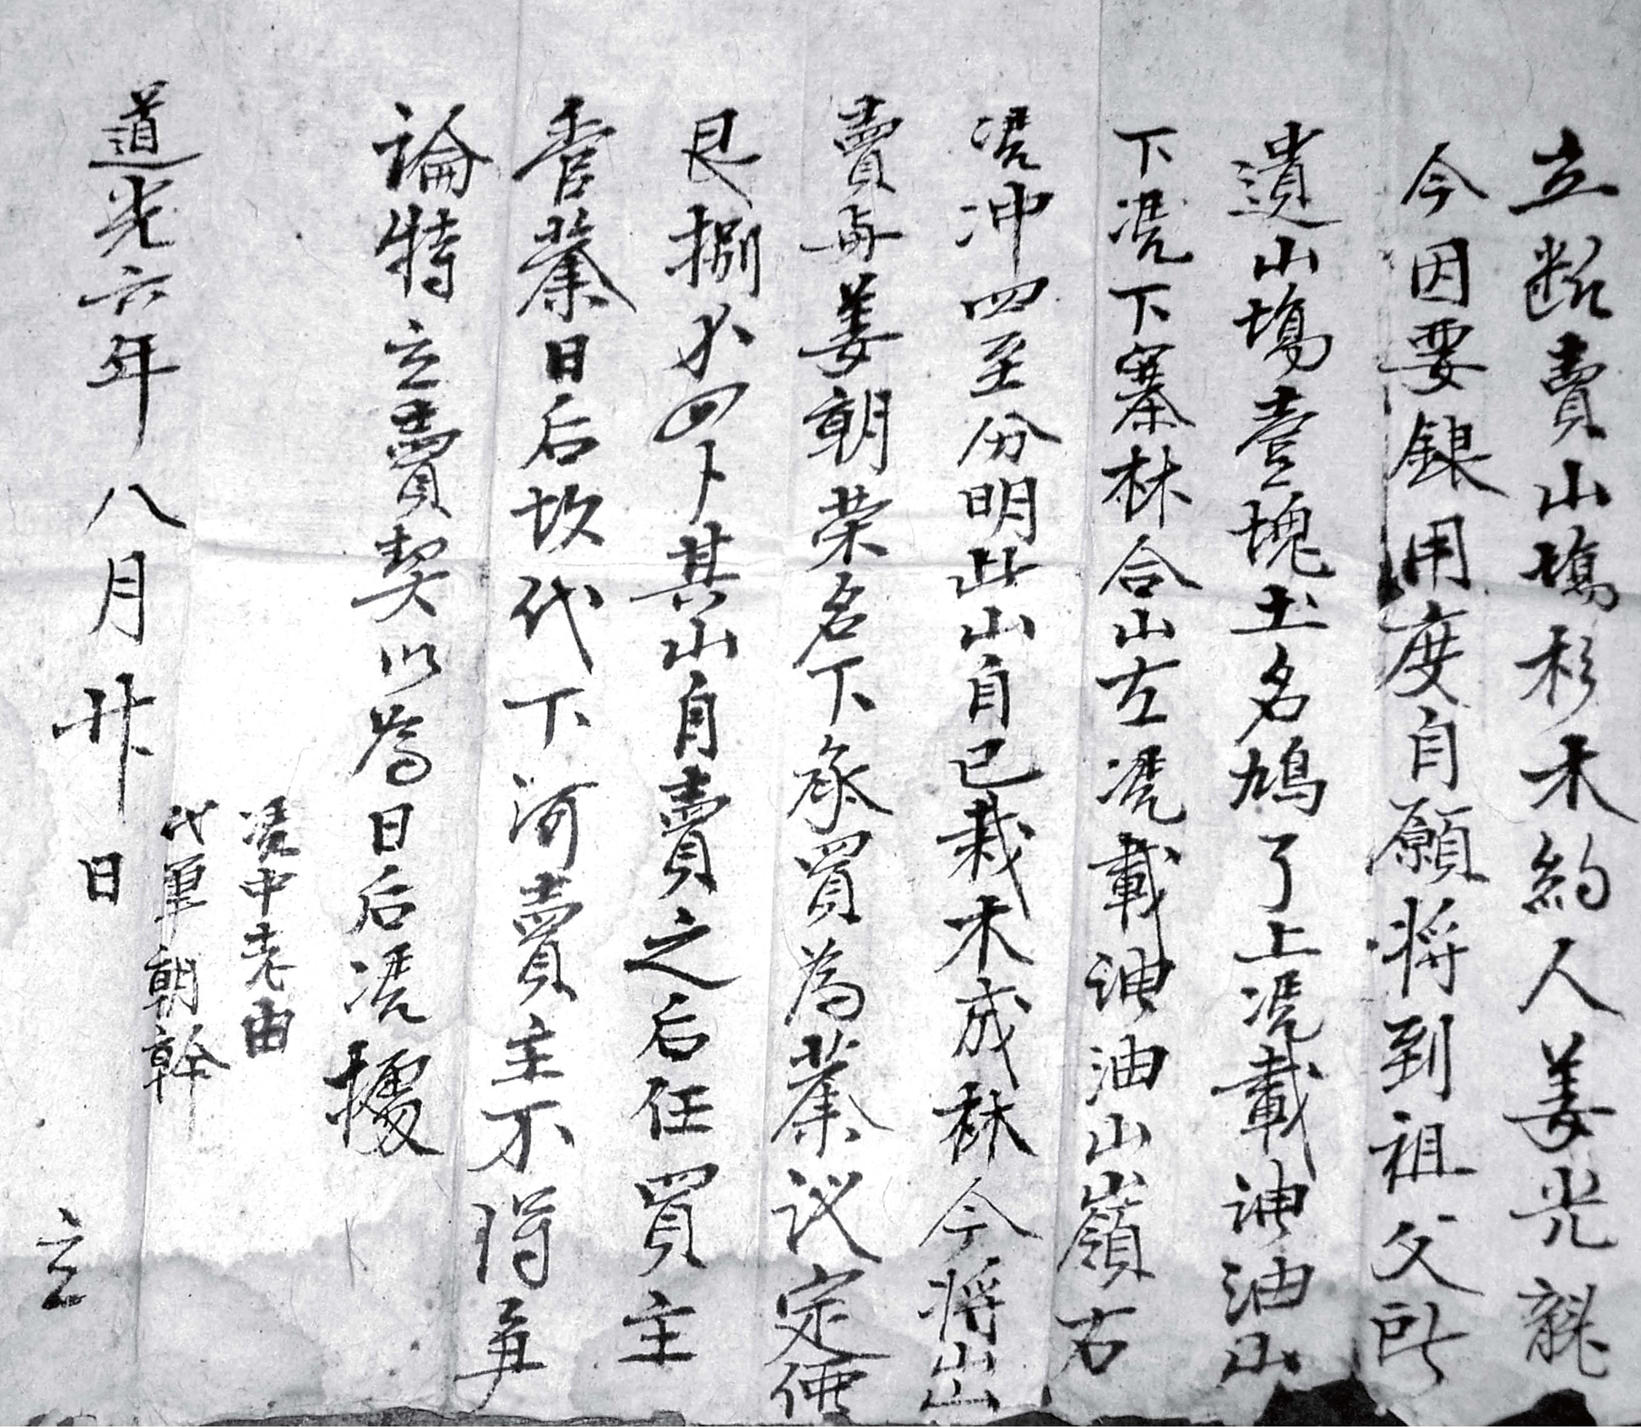 立断賣山塲杉木約人姜光龍
今因要銀用度自願将到祖父所
遺山塲壹塊土名鳩了上凭載油山
下凭下寨林合山左凭載油山嶺右
凭冲四至份明此山自己栽木成林今将出
賣与姜朝荣名下承買為業议定價
艮捌分四卜其山自賣之后任買主
管業日后坎代下河賣主不得争
論特立賣契以為日后凭據
凭中老由
代筆朝幹
道光六年八月廿日 立